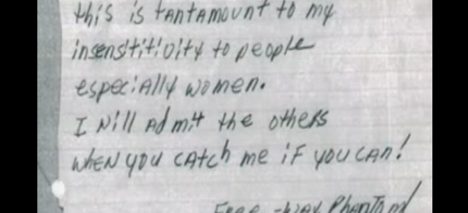 this is tantamount to my
insenstitivity to people
especially women.
I will Admit the others
when you catch me if you can!
Free-way Phantom